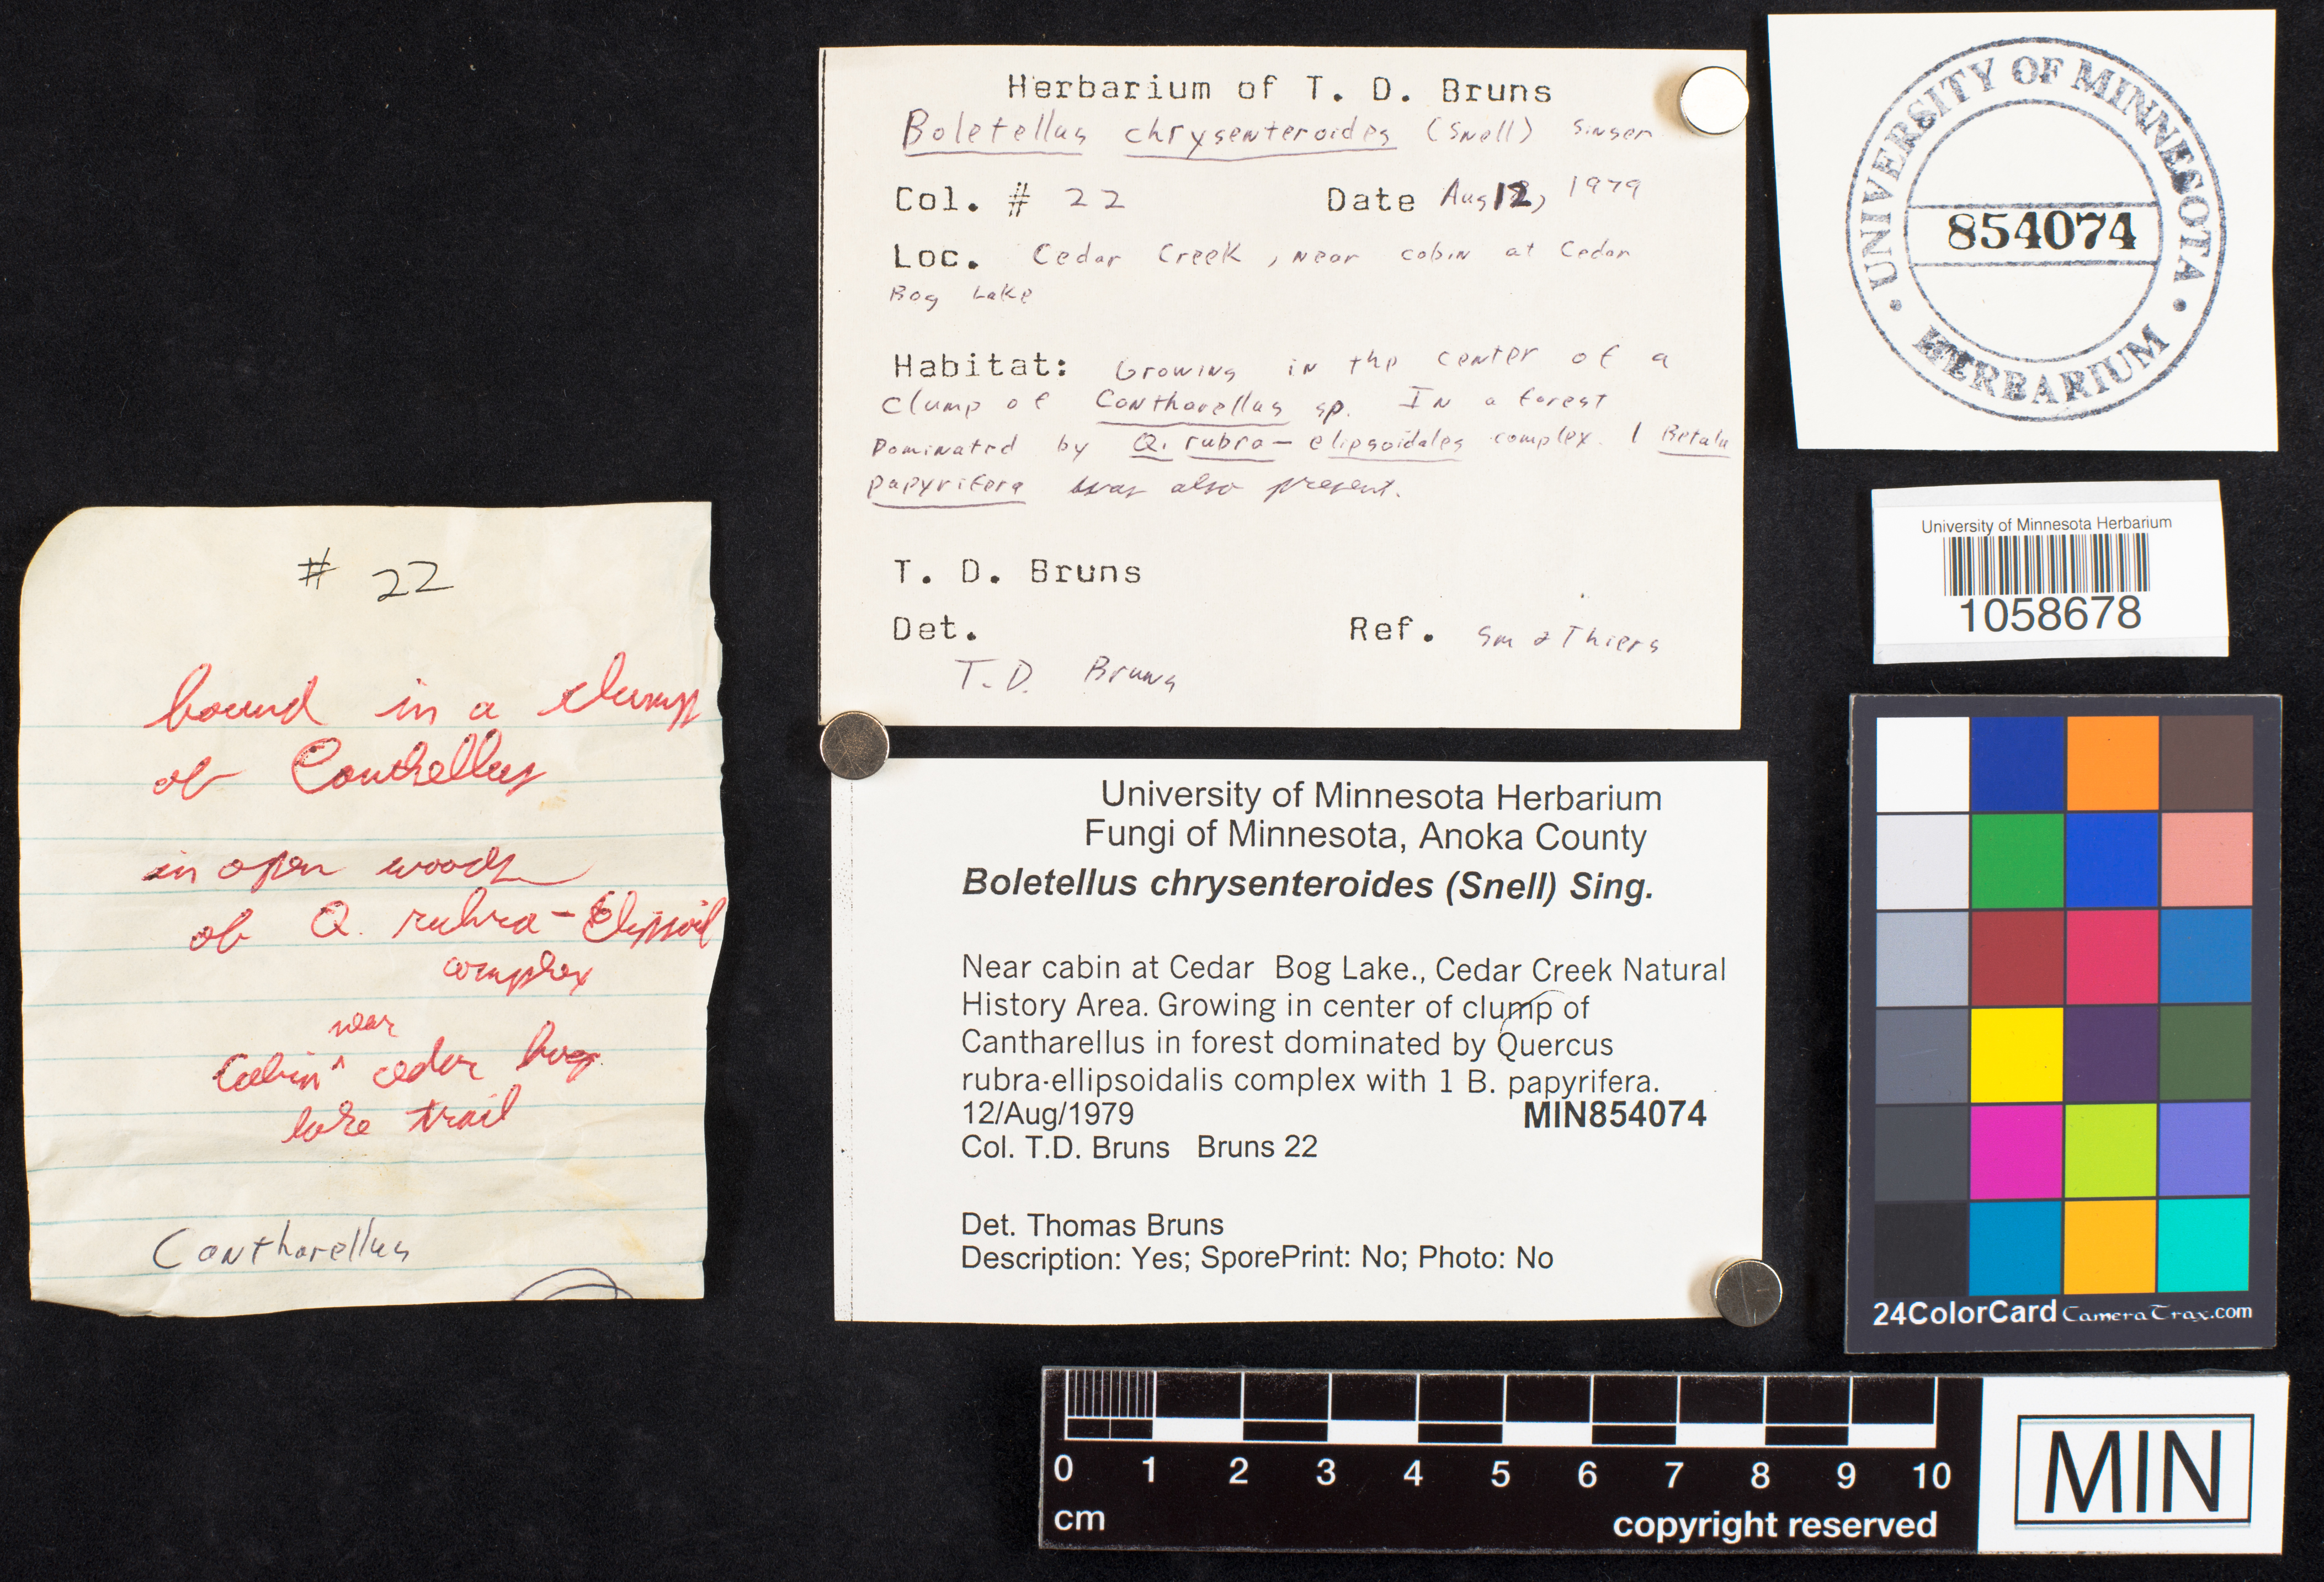 # 22
found in a clump
of Canthellus
in open woods
of Q. rubra - Elipsoid
complex
near
Cabin ^ cedar bog
lake trail
Cantharellus
Herbarium of T. D. Bruns
Boletellus chrysenteroides (Snell) Singer
Col. # 22 Date Aug 12, 1979
Loc. Cedar Creek, near cabin at Cedar
Bog Lake
Habitat: Growing in the center of a
clump of Cantharellus sp. In a forest
Dominated by Q. rubra - elipsoidales complex. 1 Betula
papyrifera was also present.
T. D. Bruns
Det. Ref. Sm & Thiers
T. D. Bruns
University of Minnesota Herbarium
Fungi of Minnesota, Anoka County
Boletellus chrysenteroides (Snell) Sing.
Near cabin at Cedar Bog Lake., Cedar Creek Natural
History Area. Growing in center of clump of
Cantharellus in forest dominated by Quercus
rubra-ellipsoidalis complex with 1 B. papyrifera.
12/Aug/1979 MIN854074
Col. T.D. Bruns Bruns 22
Det. Thomas Bruns
Description: Yes; SporePrint: No; Photo: No
• UNIVERSITY OF MINNESOTA •
854074
HERBARIUM
University of Minnesota Herbarium
1058678
24ColorCard CameraTrax.com
0 1 2 3 4 5 6 7 8 9 10
cm copyright reserved
MIN